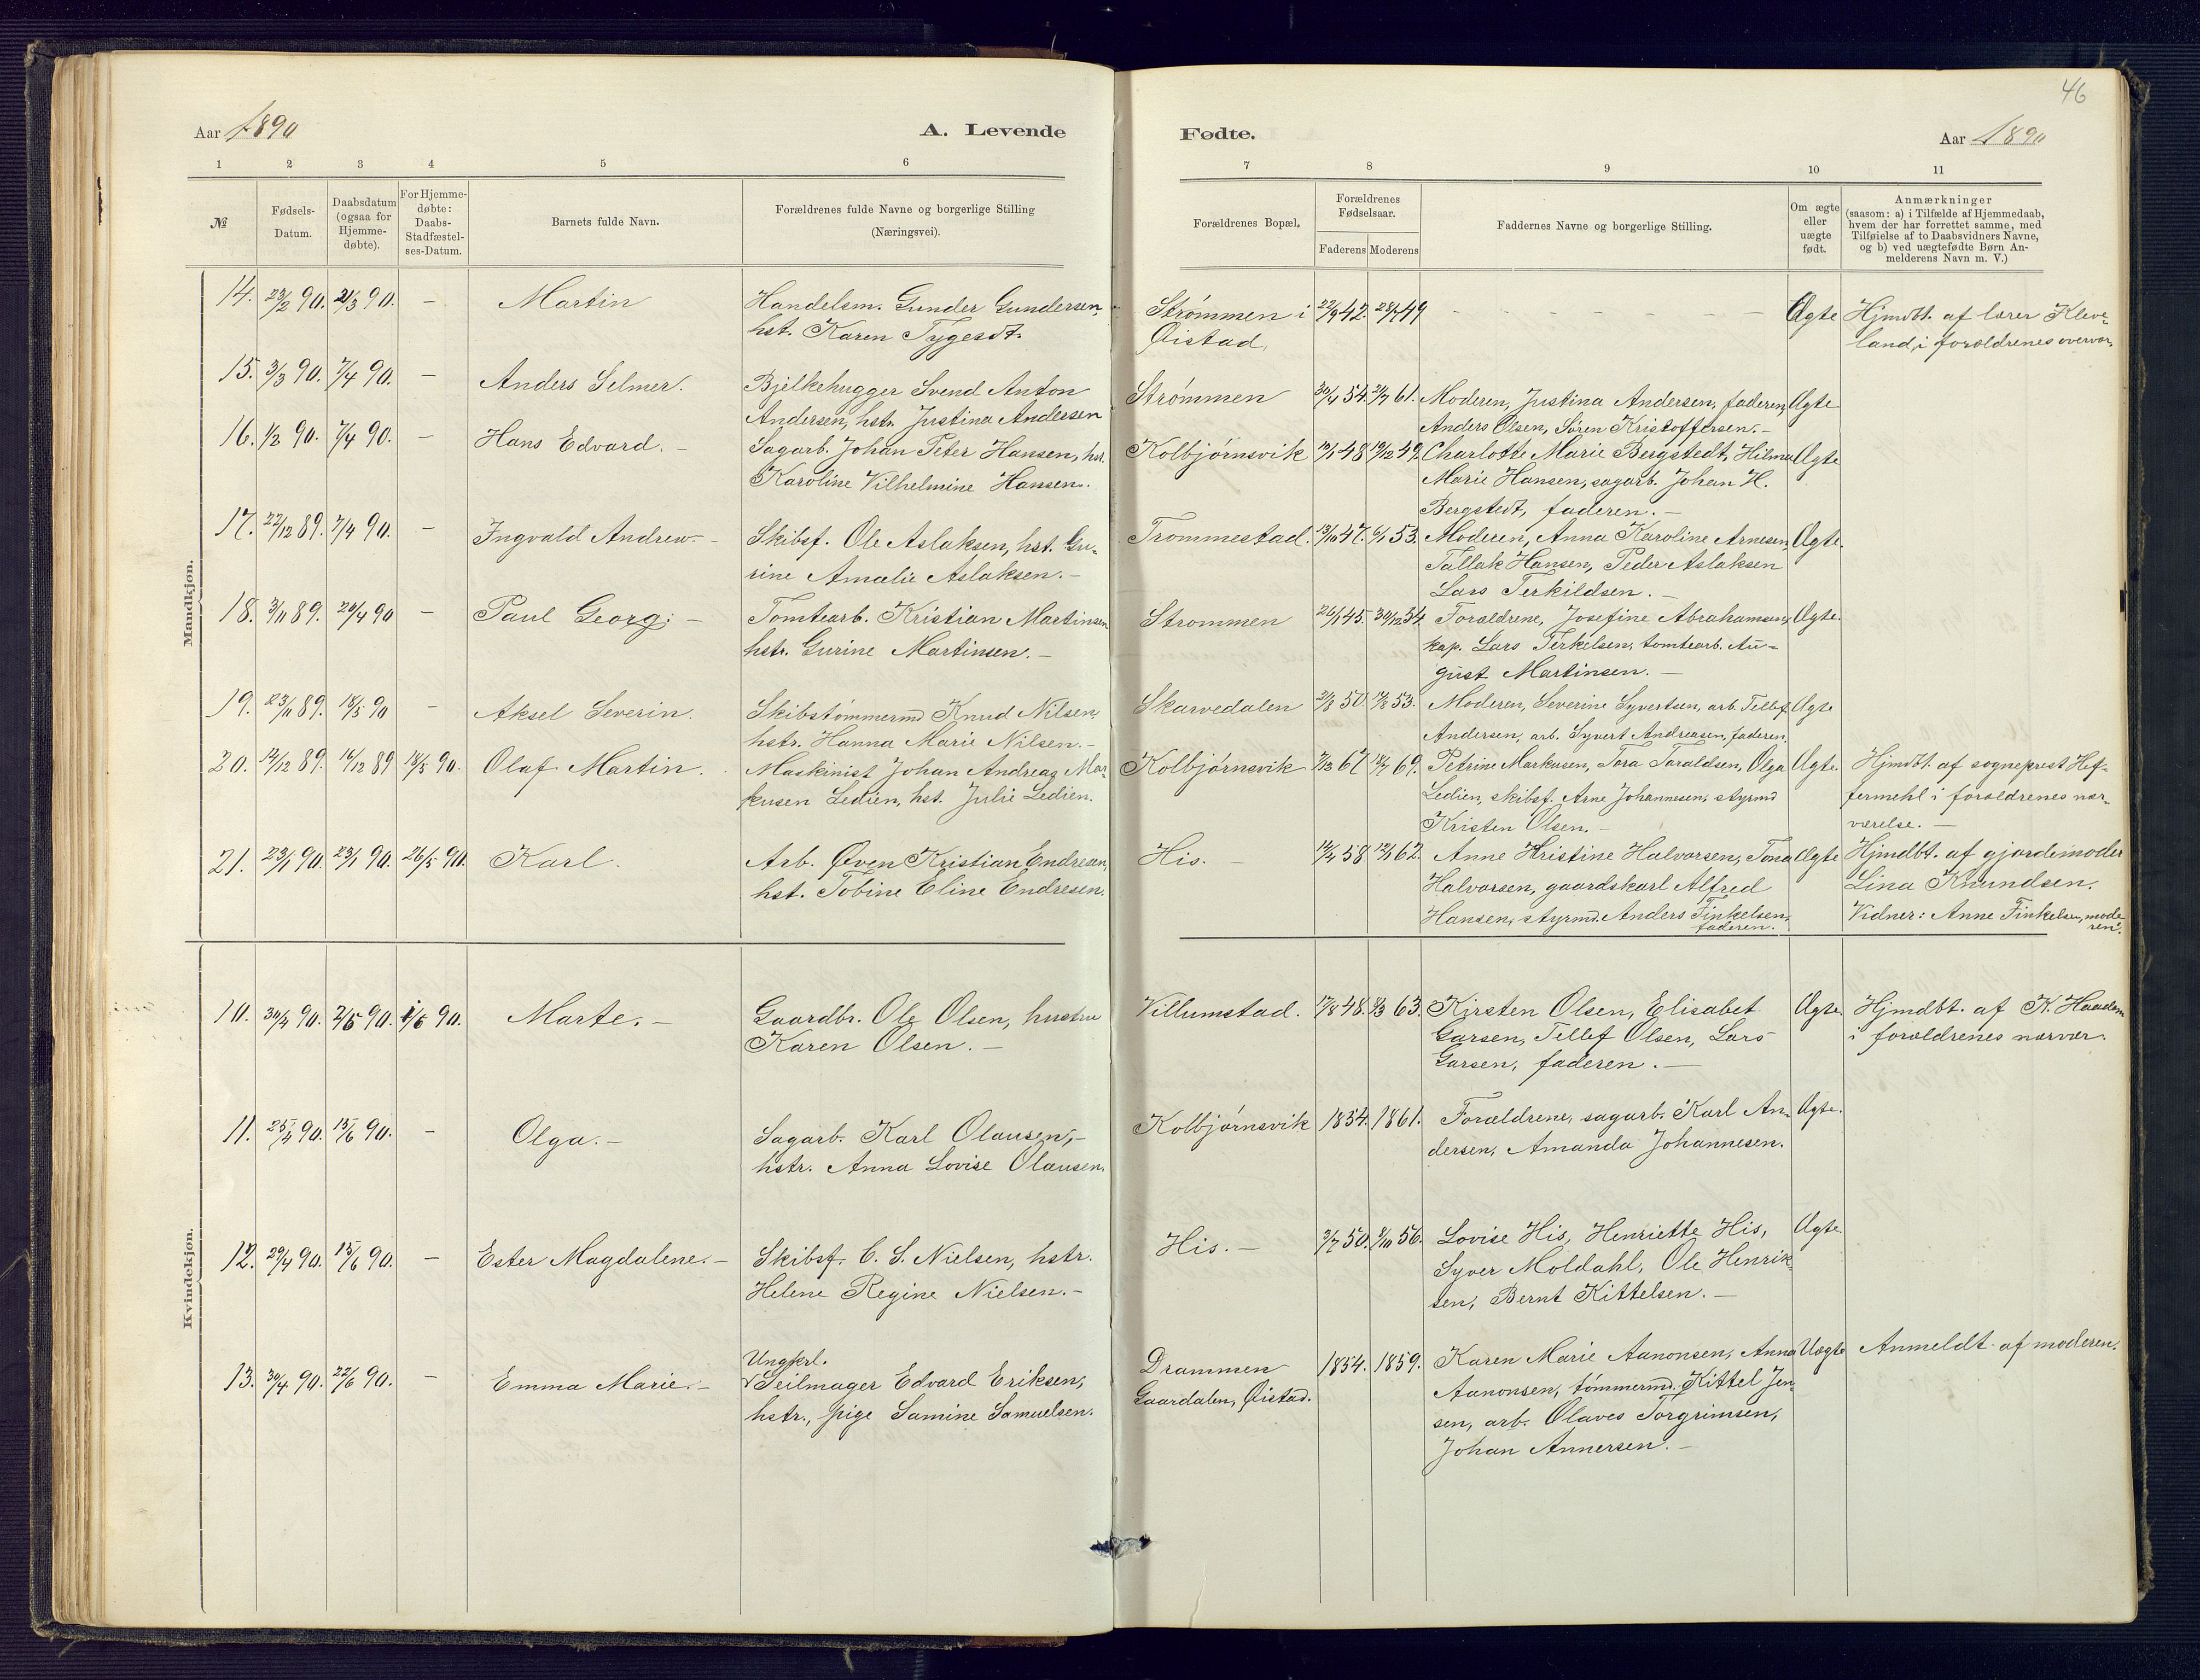 46
Aar 1890
A. Levende
Fødte.
Aar 1890
1 2 3 4 5 6 7 8 9 10 11
№
Fødsels-
Datum.
Daabsdatum
(ogsaa for
Hjemme-
døbte).
For Hjemme-
døbte:
Daabs-
Stadfæstel-
ses-Datum.
Barnets fulde Navn.
Forældrenes fulde Navne og borgerlige Stilling
(Næringsvei).
Forældrenes Bopæl.
Forældrenes
Fødselsaar.
Faderens Moderens
Faddernes Navne og borgerlige Stilling.
Om ægte
eller
uægte
født.
Anmærkninger
(saasom: a) i Tilfælde af Hjemmedaab,
hvem der har forrettet samme, med
Tilføielse af to Daabsvidners Navne,
og b) ved uægtefødte Børn An-
melderens Navn m. V.)
Mandkjøn.
14. 23/2 90. 21/3 90. – Martin Handelsm. Gunder Gundersen, Strømmen i 22/9 42. 28/7 49 - - - - - - - Ægte Hjmdbt. af lærer Kleve-
hst. Karen Tygesdt. Øistad, land, i forældrenes overvær.
15. 3/3 90. 7/4 90. – Anders Selmer. Bjelkehugger Svend Anton Strømmen 30/4 54. 61. Moderen, Justina Andersen, faderen, Ægte
Andersen, hstr. Justina Andersen Anders Olsen, Søren Kristoffersen. –
16. 1/2 90. 7/4 90. – Hans Edvard. – Sagarb. Johan Peter Hansen, hst. Kolbjørnsvik 48 49. Charlotte Marie Bergstedt, Hilma Ægte
Karoline Vilhelmine Hansen. Marie Hansen, sagarb. Johan H.
Bergstedt, faderen. –
17. 22/12 89. 7/4 90. – Ingvald Andrew. – Skibsf. Ole Aslaksen, hst. Gu- Trommestad. 13/10 47. 6/1 53. Moderen, Anna Karoline Arnesen, Ægte.
rine Amalie Aslaksen. – Tallak Hansen, Peder Aslaksen
Lars Terkildsen. –
18. 3/11 89. 20/4 90 – Paul Georg. – Tomtearb. Kristian Martinsen Strømmen 26/1 45. 30/12 54. Forældrene, Josefine Abrahamsen, Ægte.
hstr. Gurine Martinsen. – kap. Lars Terkelsen, tomtearb. Au-
gust Martinsen. –
19. 23/11 89. 18/5 90 – Aksel Severin. Skibstømmermd Knud Nilsen, Skarvedalen 50. 53. Moderen, Severine Syvertsen, arb. Tellef Ægte
hstr. Hanna Marie Nilsen. – Andersen, arb. Syvert Andreasen, faderen.
20. 14/12 89. 16/12 89 18/5 90. Olaf Martin. Maskinist Johan Andreas Mar- Kolbjørnsvik 67 69. Petrine Markusen, Tora Taraldsen, Olga Ægte. Hjmdbt. af sogneprest Hef-
kusen Ledien, hst. Julie Ledien. Ledien, skibsf. Arne Johannesen, styrmd fermehl i forældrenes nær-
Kristen Olsen. – værelse. –
21. 23/1 90. 23/1 90. 26/5 90. Karl. Arb. Øven Kristian Endresen, His. – 58 62. Anne Kristine Halvorsen, Tona Ægte Hjmdbt. af gjordemoder
hst. Tobine Eline Endresen. Halvorsen, gaardskarl Alfred Lina Knundsen.
Hansen, styrmd. Anders Finkelsen, Vidner: Anne Finkelsen, mode-
faderen. ren.
Kvindekjøn.
10. 30/4 90. 2/5 90. 1/6 90. Marte. – Gaardbr. Ole Olsen, hustru Villumstad. 48. 63. Kirsten Olsen, Elisabet Ægte. Hjmdbt. af K. Haadem
Karen Olsen. – Garsen, Tellef Olsen, Lars i forældrenes nærvær.
Garsen, faderen. –
11. 25/4 90. 15/6 90. – Olga. – Sagarb. Karl Olausen, – Kolbjørnsvik 1854. 1861. Forældrene, sagarb. Karl An- Ægte.
hstr. Anna Lovise Olausen. dersen, Amanda Johannesen.
12. 29/4 90. 15/6 90. – Ester Magdalene. – Skibsf. C. S. Nielsen, hstr. His. – 2/7 50. 9/10 56. Lovise His, Henriette His, Ægte
Helene Regine Nielsen. – Syver Moldahl, Ole Henrik-
sen, Bernt Kittelsen. –
13. 30/4 90. 22/6 90. – Emma Marie. – Ungkrl. Drammen 1854. 1859. Karen Marie Aanonsen, Anna Uægte Anmeldt af moderen.
Seilmager Edvard Eriksen, Gaardalen, Øistad. Aanonsen, tømmermd. Kittel Jen-
hstr., pige Samine Samuelsen. sen, arb. Olaves Torgrimsen,
Johan Annersen. –